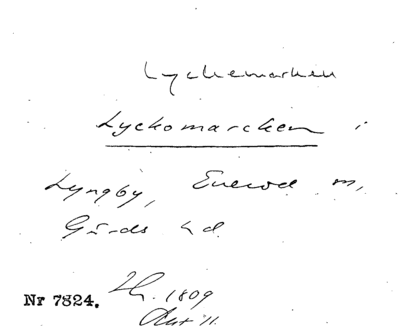 Lyckemarken
Lyckomarcken i
Lyngby, Everöd m,
Gärds hd
Nr 7824. 1809